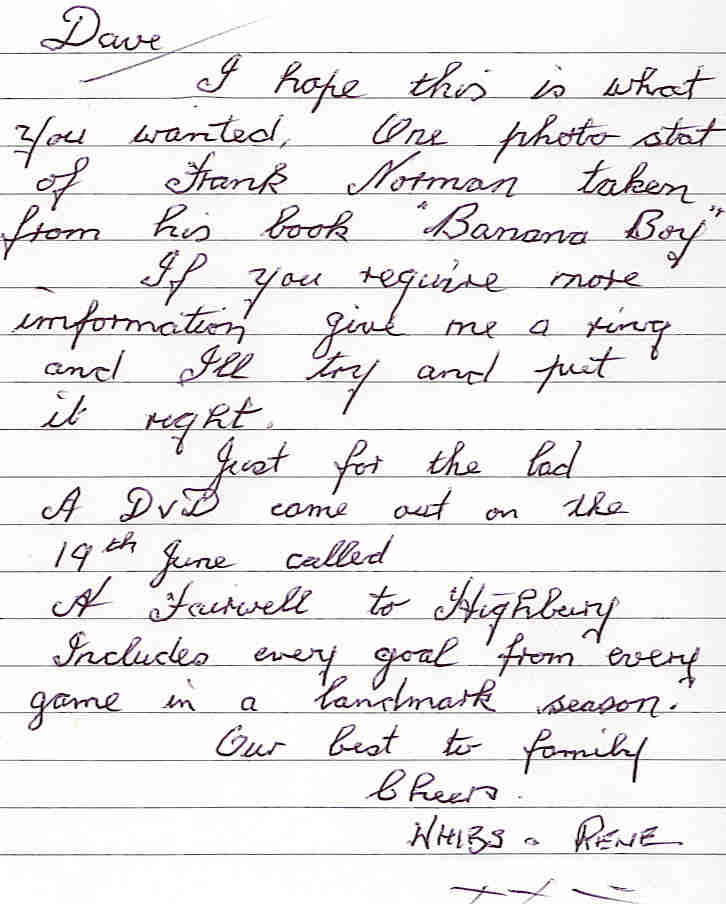 Dave
I hope this is what
you wanted, One photo stat
of Frank Norman taken
from his book "Banana Boy"
If you require more
imformation give me a ring
and I'll try and put
it right.
Just for the lad
A DVD came out on the
19th June called
A Fairwell to Highbury
Includes every goal from every
game in a landmark season.
Our best to family
Cheers.
WHIBS & RENE